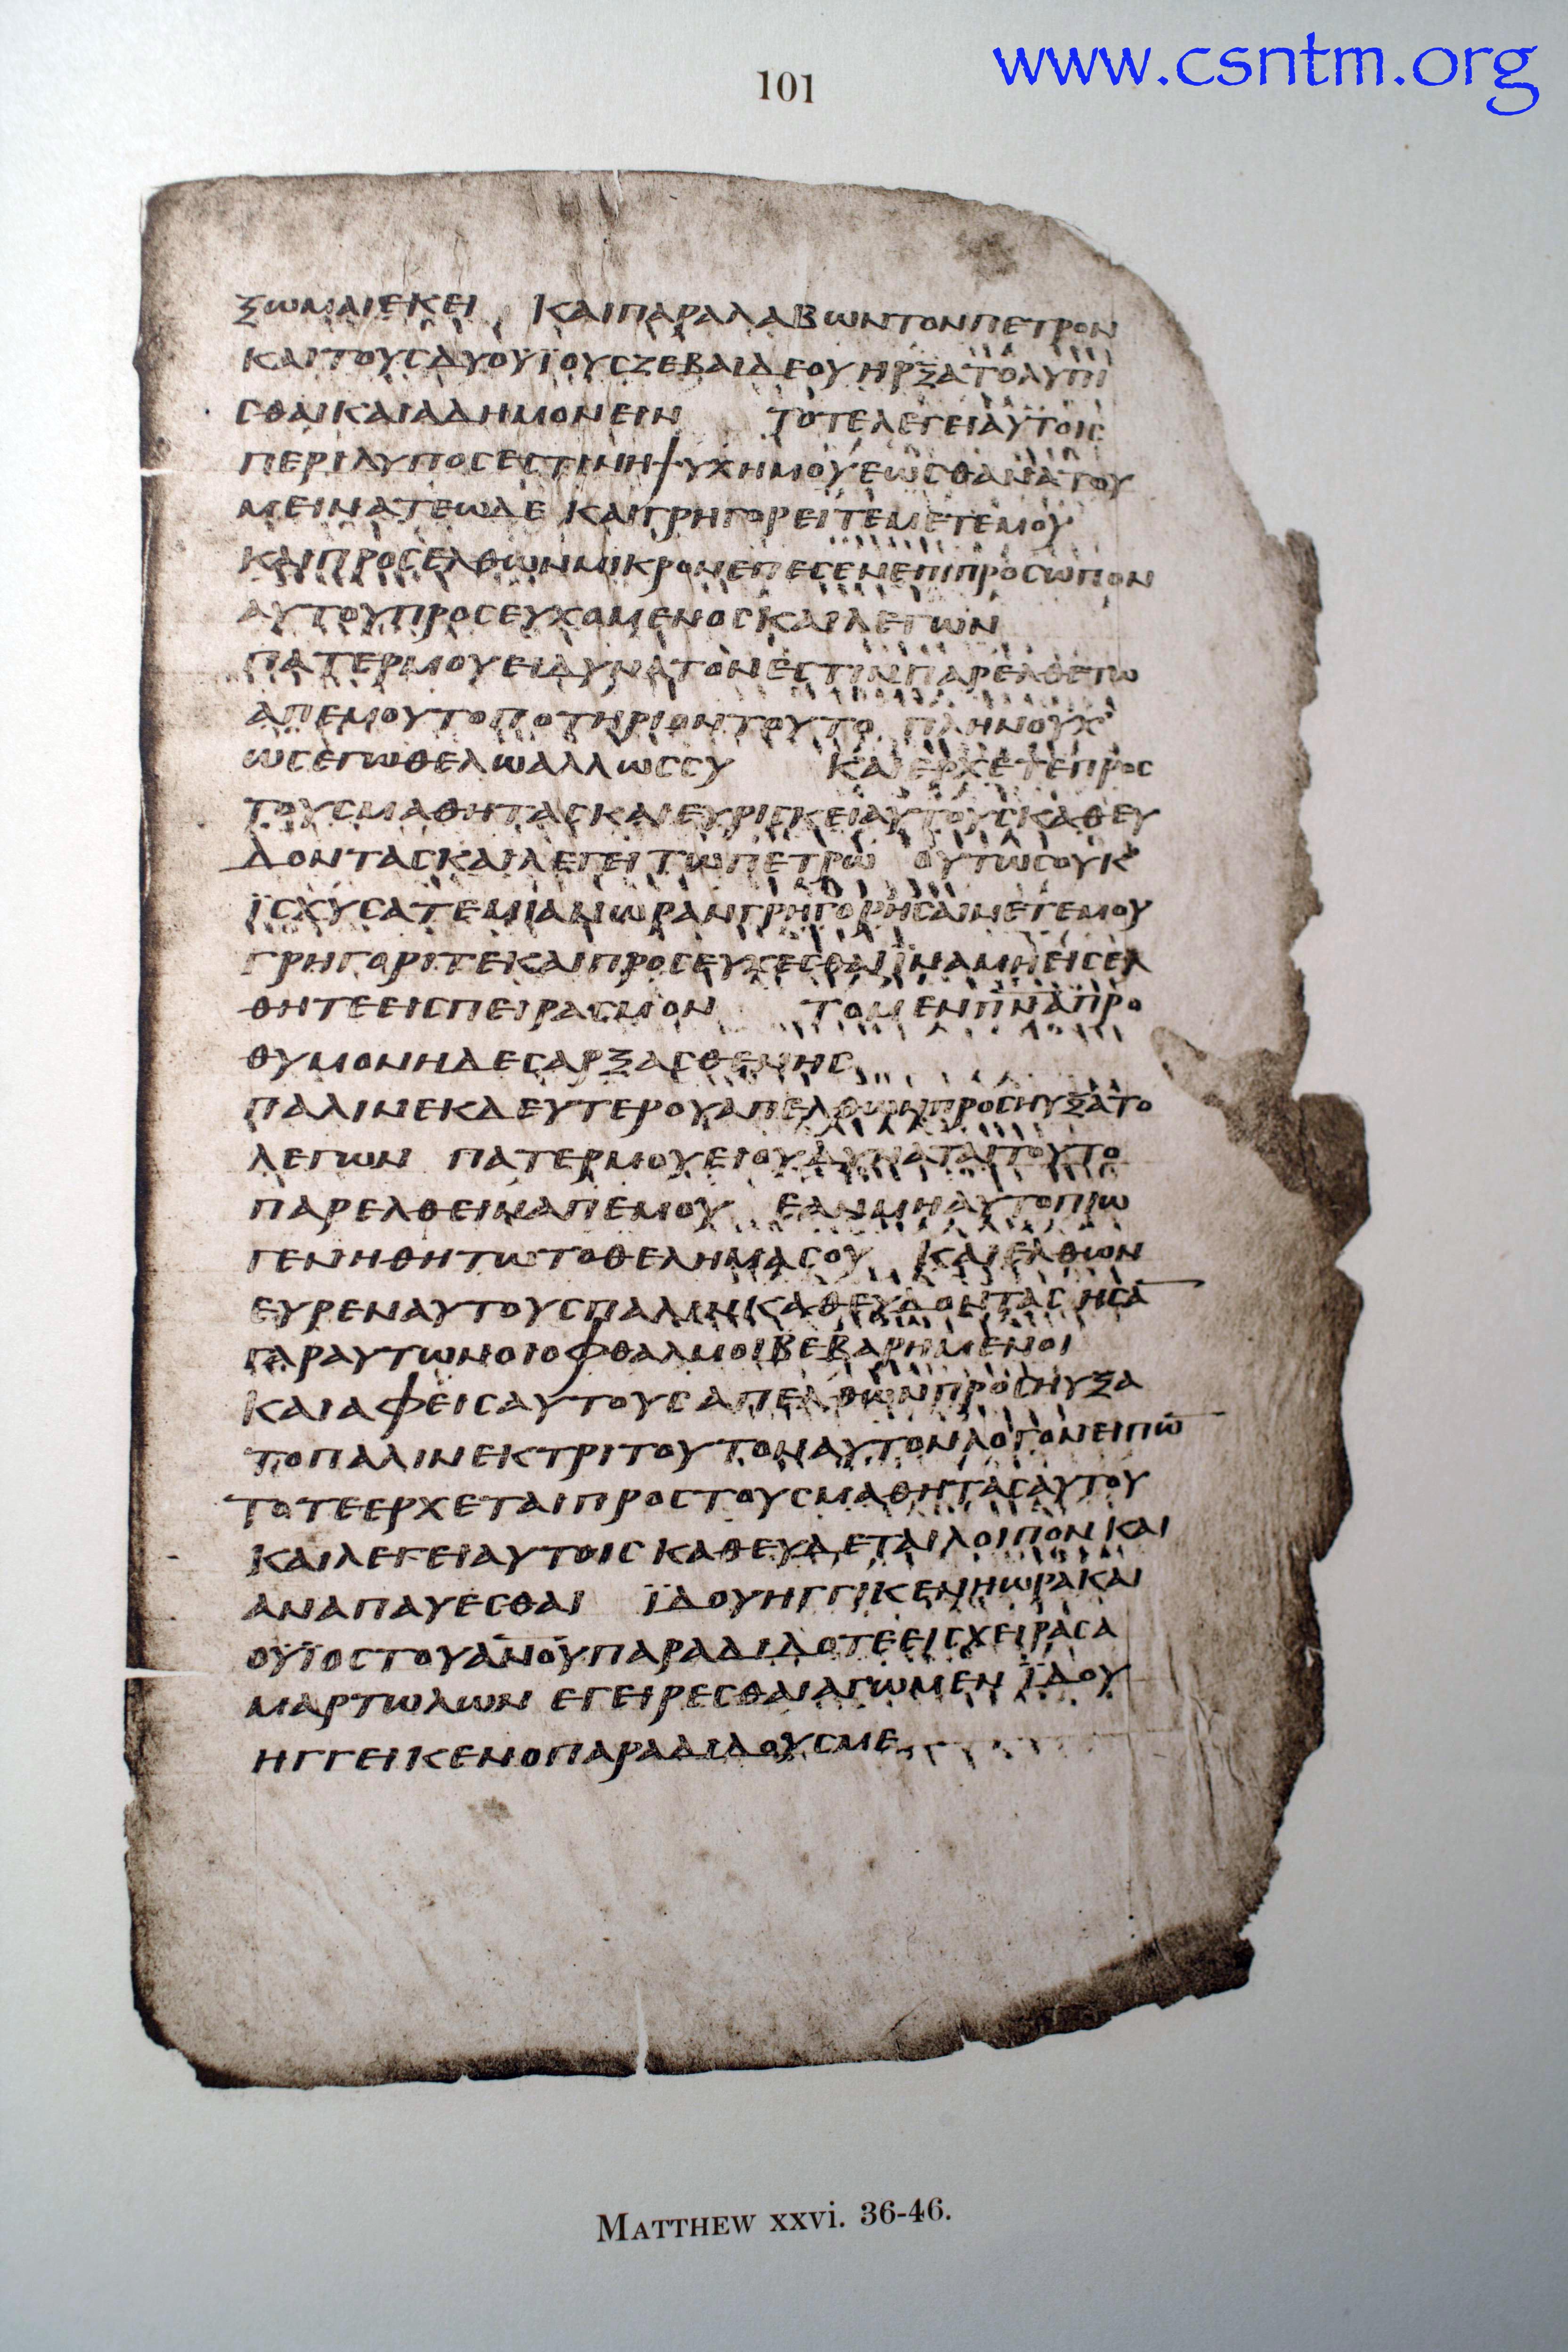 www.csntm.org
101
ξωμαιεκει καιπαραλαβωντονπετρον
καιτουσδυοϋϊουσζεβαιδεουηρξατολυπι
σθαικαιαδημονειν τοτελεγειαυτοισ
περιλυποσεστινηψυχημουεωσθανατου
μεινατεωδε καιγρηγορειτεμετεμου
καιπροσελθωνμικρονεπεσενεπιπροσωπον
αυτουπροσευχομενοσκαιλεγων
πατερμουειδυνατονεστινπαρελθετω
απεμουτοποτηριοντουτο πληνουχ
ωσεγωθελωαλλωσσυ καιερχετεπροσ
τουσμαθητασκαιευρισκειαυτουσκαθευ
δοντασκαιλεγειτωπετρω ουτωσουκ
ϊσχυσατεμιανωρανγρηγορησαιμετεμου
γρηγοριτεκαιπροσευχεσθαιϊναμηεισελ
θητεεισπειρασμον τομενπ̅ν̅α̅προ
θυμονηδεσαρξασθενησ
παλινεκδευτερουαπελθωνπροσηυξατο
λεγων πατερμουειουδυναταιτουτο
παρελθειναπεμου εανμηαυτοπιω
γενηθητωτοθελημασου καιελθων
ευρεναυτουσπαλινκαθευδοντασ ησα̅
γαραυτωνοιοφθαλμοιβεβαρημενοι
καιαφεισαυτουσαπελθωνπροσηυξα
τοπαλινεκτριτουτοναυτονλογονειπω̅
τοτεερχεταιπροστουσμαθητασαυτου
καιλεγειαυτοισκαθευδεταιλοιπονκαι
αναπαυεσθαι ϊδουηγγικενηωρακαι
οϋϊοστουα̅ν̅ο̅υ̅παραδιδοτεεισχειρασα
μαρτωλων εγειρεσθαιαγωμεν ϊδου
ηγγεικενοπαραδιδουσμε
Matthew xxvi. 36-46.